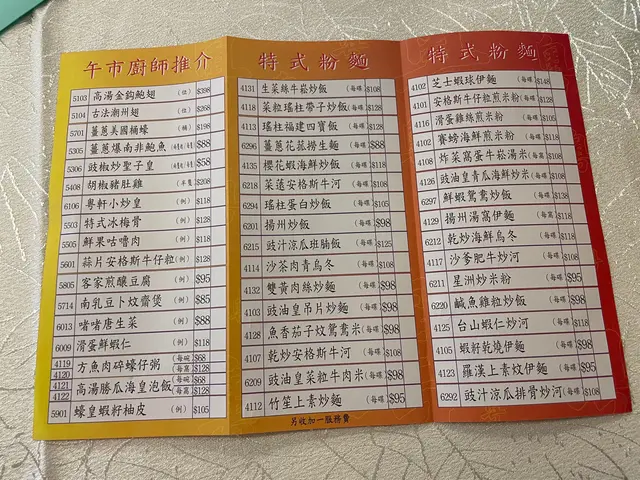 午市廚師推介
5103 高湯金鈎鮑翅 (位) $398
5104 古法潮州翅 (位) $268
5701 薑蔥美國桶蠔 (桶) $198
5305 薑蔥爆南非鮑魚 $58
5306 豉椒炒聖子皇 $58
5408 胡椒豬肚雞 (半隻) $208
6106 粵軒小炒皇 (例) $118
5503 特式冰梅骨 (例) $128
5505 鮮果咕嚕肉 (例) $118
5601 蒜片安格斯牛仔粒 (例) $128
5805 客家煎釀豆腐 (例) $95
5714 南乳豆卜炆齋煲 (例) $85
6013 啫啫唐生菜 (例) $88
6009 滑蛋鮮蝦仁 (例) $118
4119 方魚肉碎蠔仔粥 (每碗) $68
4120 (每窩) $128
4121 高湯勝瓜海皇泡飯 (每碗) $68
4122 (每窩) $128
5901 蠔皇蝦籽柚皮 (例) $105
特式粉麵
4131 生菜絲牛崧炒飯 (每碟) $108
4118 菜粒瑤柱帶子炒飯 (每碟) $128
4113 瑤柱福建四寶飯 (每碟) $128
6296 薑蔥花菰撈生麵 (每碟) $88
4135 櫻花蝦海鮮炒飯 (每碟) $118
6218 菜薳安格斯牛河 (每碟) $108
6294 瑤柱蛋白炒飯 (每碟) $108
6201 揚州炒飯 (每碟) $98
6215 豉汁涼瓜班腩飯 (每碟) $125
4114 沙茶肉青烏冬 (每碟) $118
4132 雙黃肉絲炒麵 (每碟) $98
4103 豉油皇吊片炒麵 (每碟) $98
4128 魚香茄子炆鴛鴦米 (每碟) $98
4107 乾炒安格斯牛河 (每碟) $98
6209 豉油皇菜粒牛肉米 (每碟) $98
4112 竹笙上素炒麵 (每碟) $95
另收加一服務費
特式粉麵
4102 芝士蝦球伊麵 (每碟) $148
4101 安格斯牛仔粒煎米粉 (每碟) $128
4116 滑蛋雞絲煎米粉 (每碟) $108
4102 賽螃海鮮煎米粉 (每碟) $118
4108 炸菜窩蛋牛崧湯米 (每窩) $108
4126 豉油皇青瓜海鮮炒米 (每碟) $118
6297 鮮蝦鴛鴦炒飯 (每碟) $138
4129 揚州湯窩伊麵 (每窩) $118
6212 乾炒海鮮烏冬 (每碟) $118
4117 沙爹肥牛炒河 (每碟) $108
6211 星洲炒米粉 (每碟) $95
6220 鹹魚雞粒炒飯 (每碟) $98
4125 台山蝦仁炒河 (每碟) $118
4105 蝦籽乾燒伊麵 (每碟) $98
4123 羅漢上素炆伊麵 (每碟) $95
6292 豉汁涼瓜排骨炒河 (每碟) $108